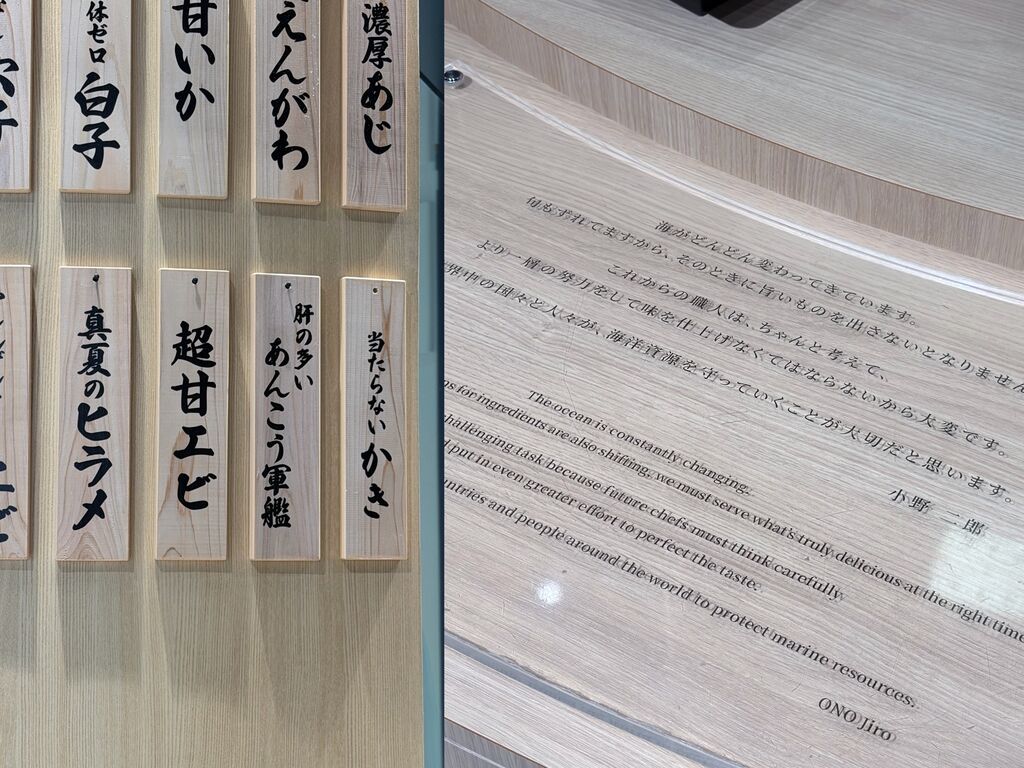 濃厚あじ
えんがわ
甘いか
体ゼロ
白子
穴子
当たらないかき
肝の多い
あんこう軍艦
超甘エビ
真夏のヒラメ
海がどんどん変わってきています。
旬もずれてますから、そのときに旨いものを出さないとなりません
これからの職人は、ちゃんと考えて、
より一層の努力をして味を仕上げなくてはならないから大変です。
界中の国々と人々が、海洋資源を守っていくことが大切だと思います。
小野 二郎
The ocean is constantly changing.
os for ingredients are also shifting, we must serve what's truly delicious at the right time
challenging task because future chefs must think carefully
d put in even greater effort to perfect the taste.
untries and people around the world to protect marine resources.
ONO Jiro